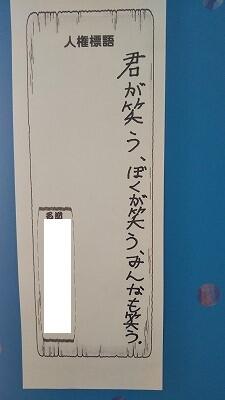 人権標語
君が笑う、ぼくが笑う、みんなも笑う。
名前